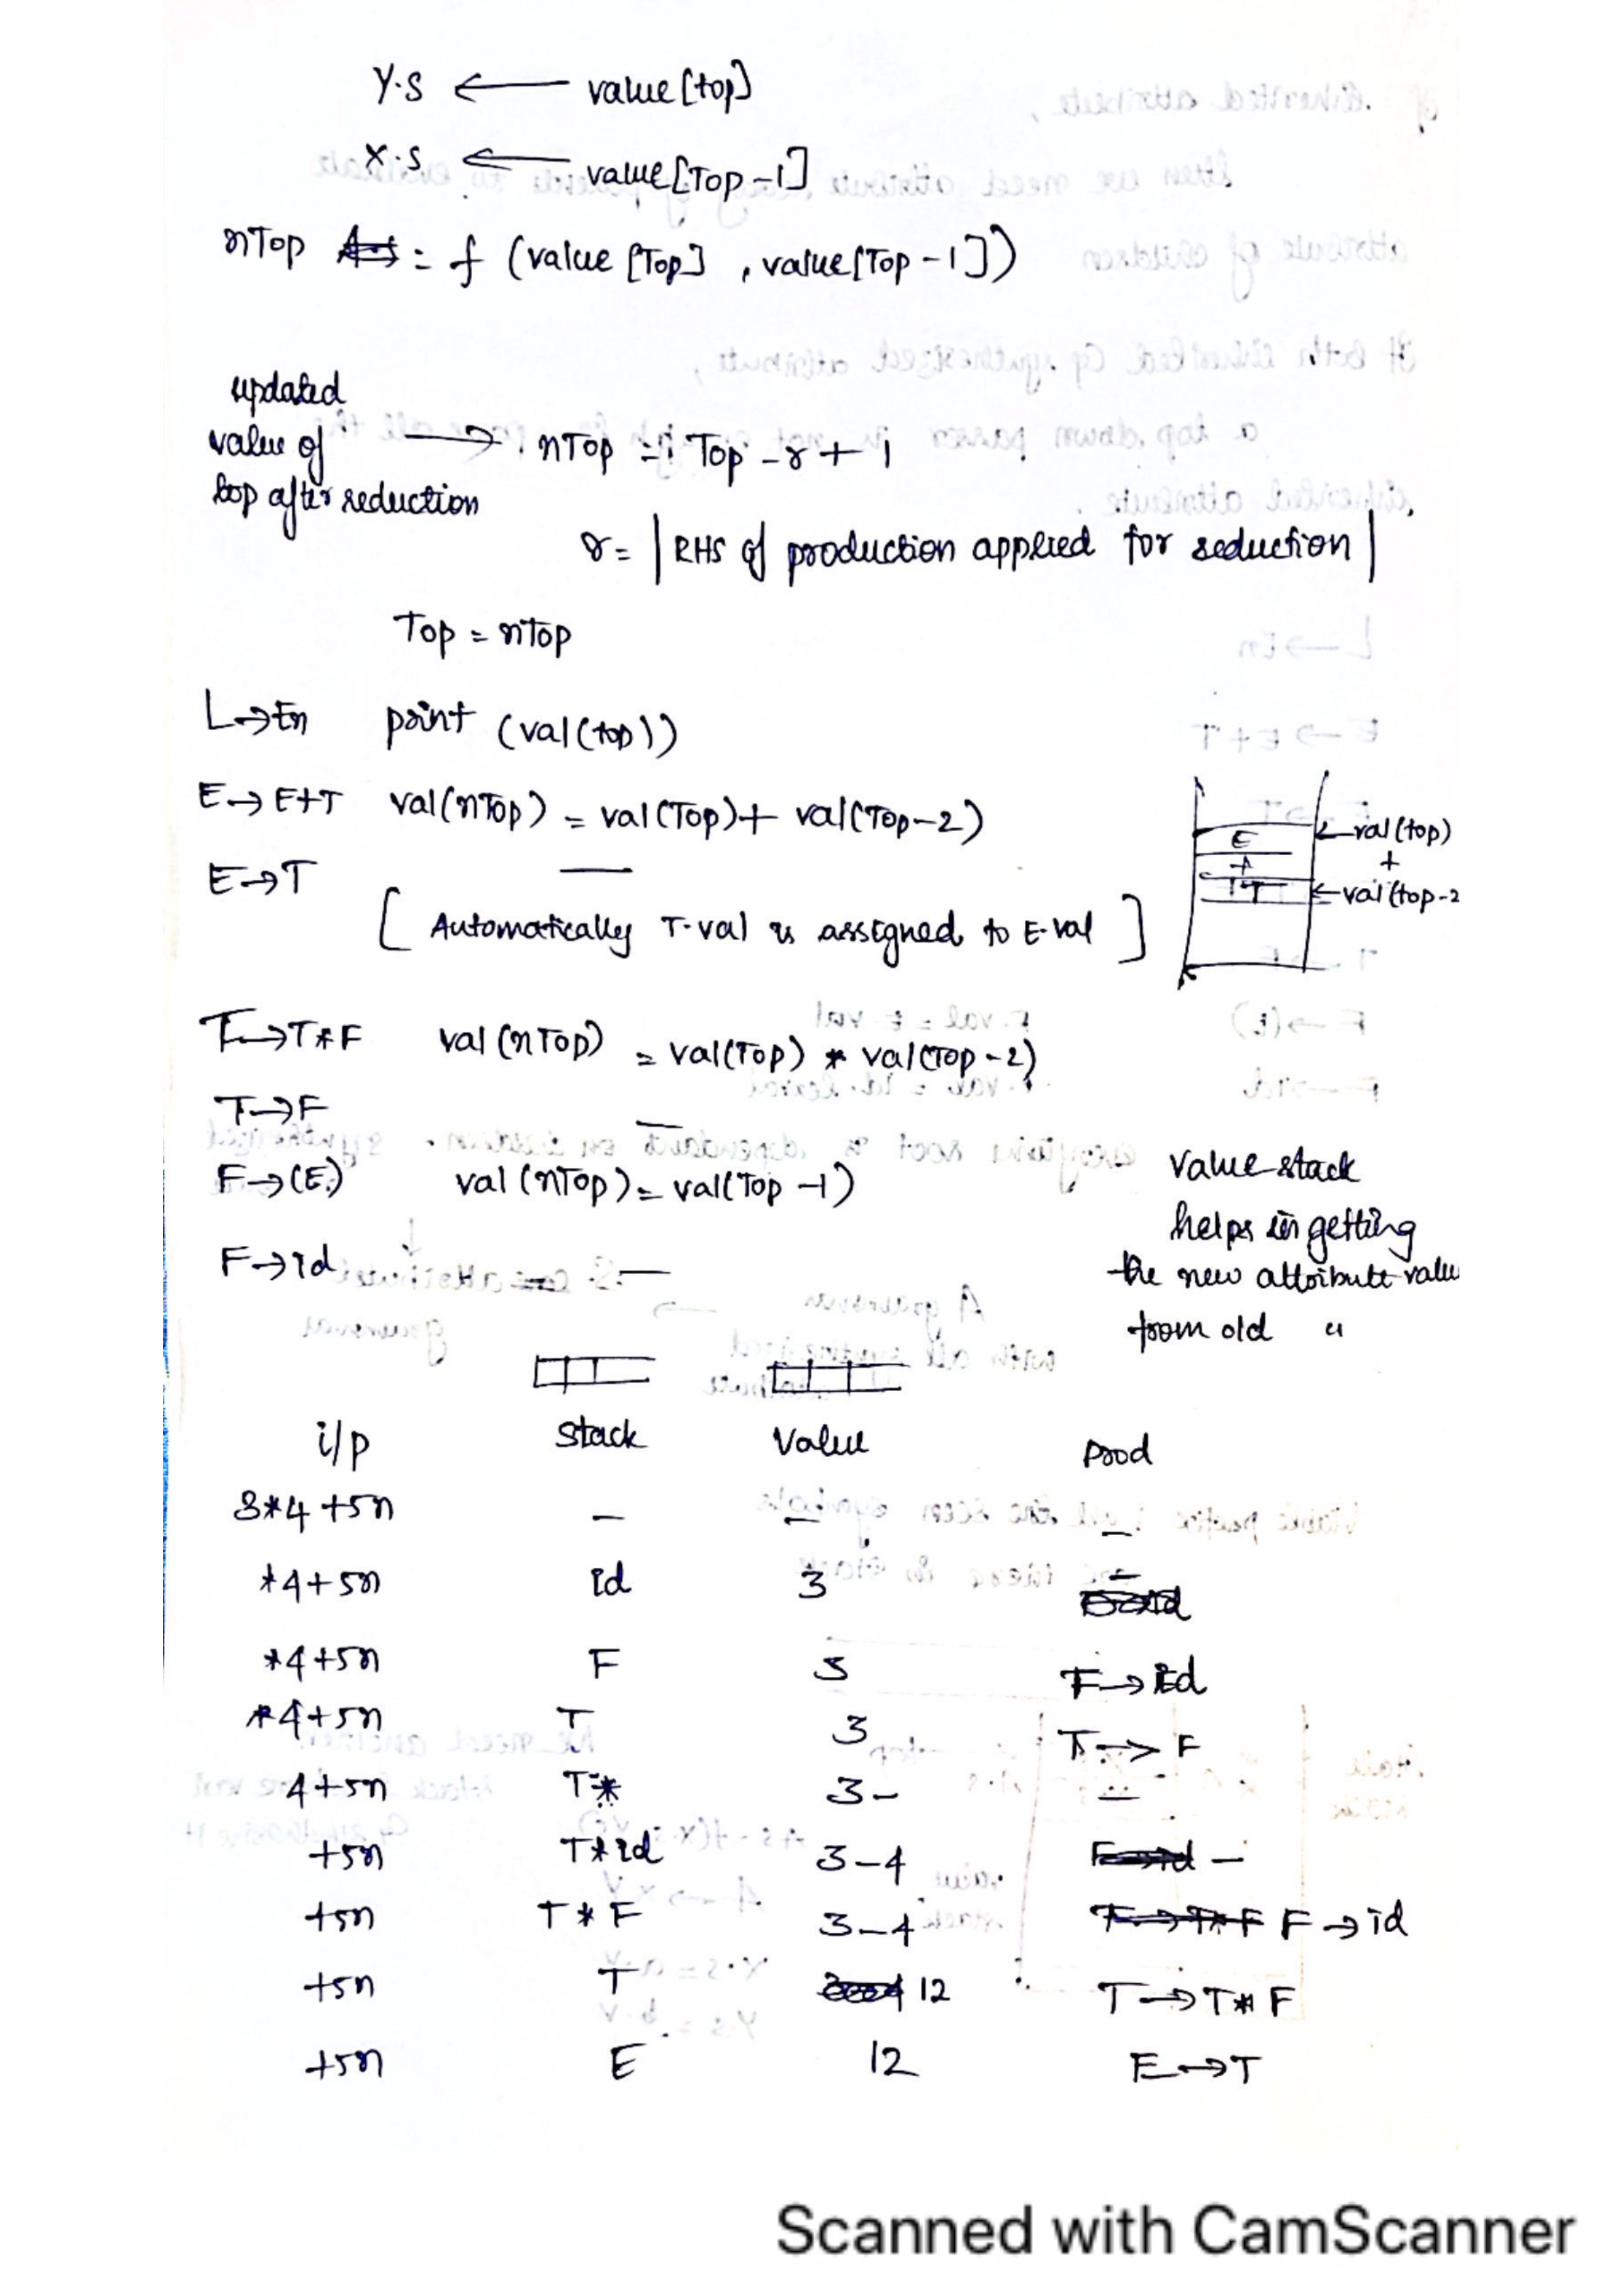 Y.S ← value[top]
X.S ← value[Top-1]
nTop = f (value[Top], value[Top-1])
updated
value of → nTop = Top - r + 1
top after reduction
r = |RHS of production applied for reduction|
Top = nTop
L→En print (val(top))
E→E+T val(nTop) = val(Top) + val(Top-2)
E→T —
[Automatically T.val is assigned to E.val]
E ← val(top)
+ +
T ← val(top-2
T→T*F val(nTop) = val(Top) * val(Top-2)
T→F —
F→(E) val(nTop) = val(Top-1)
F→id —
Value stack
helps in getting
the new attribute value
from old "
i/p Stack Value Prod
3*4+5n — — —
*4+5n id 3 —
*4+5n F 3 F→id
*4+5n T 3 T→F
4+5n T* 3- —
+5n T*id 3-4 —
+5n T*F 3-4 F→id
+5n T 12 T→T*F
+5n E 12 E→T
Scanned with CamScanner